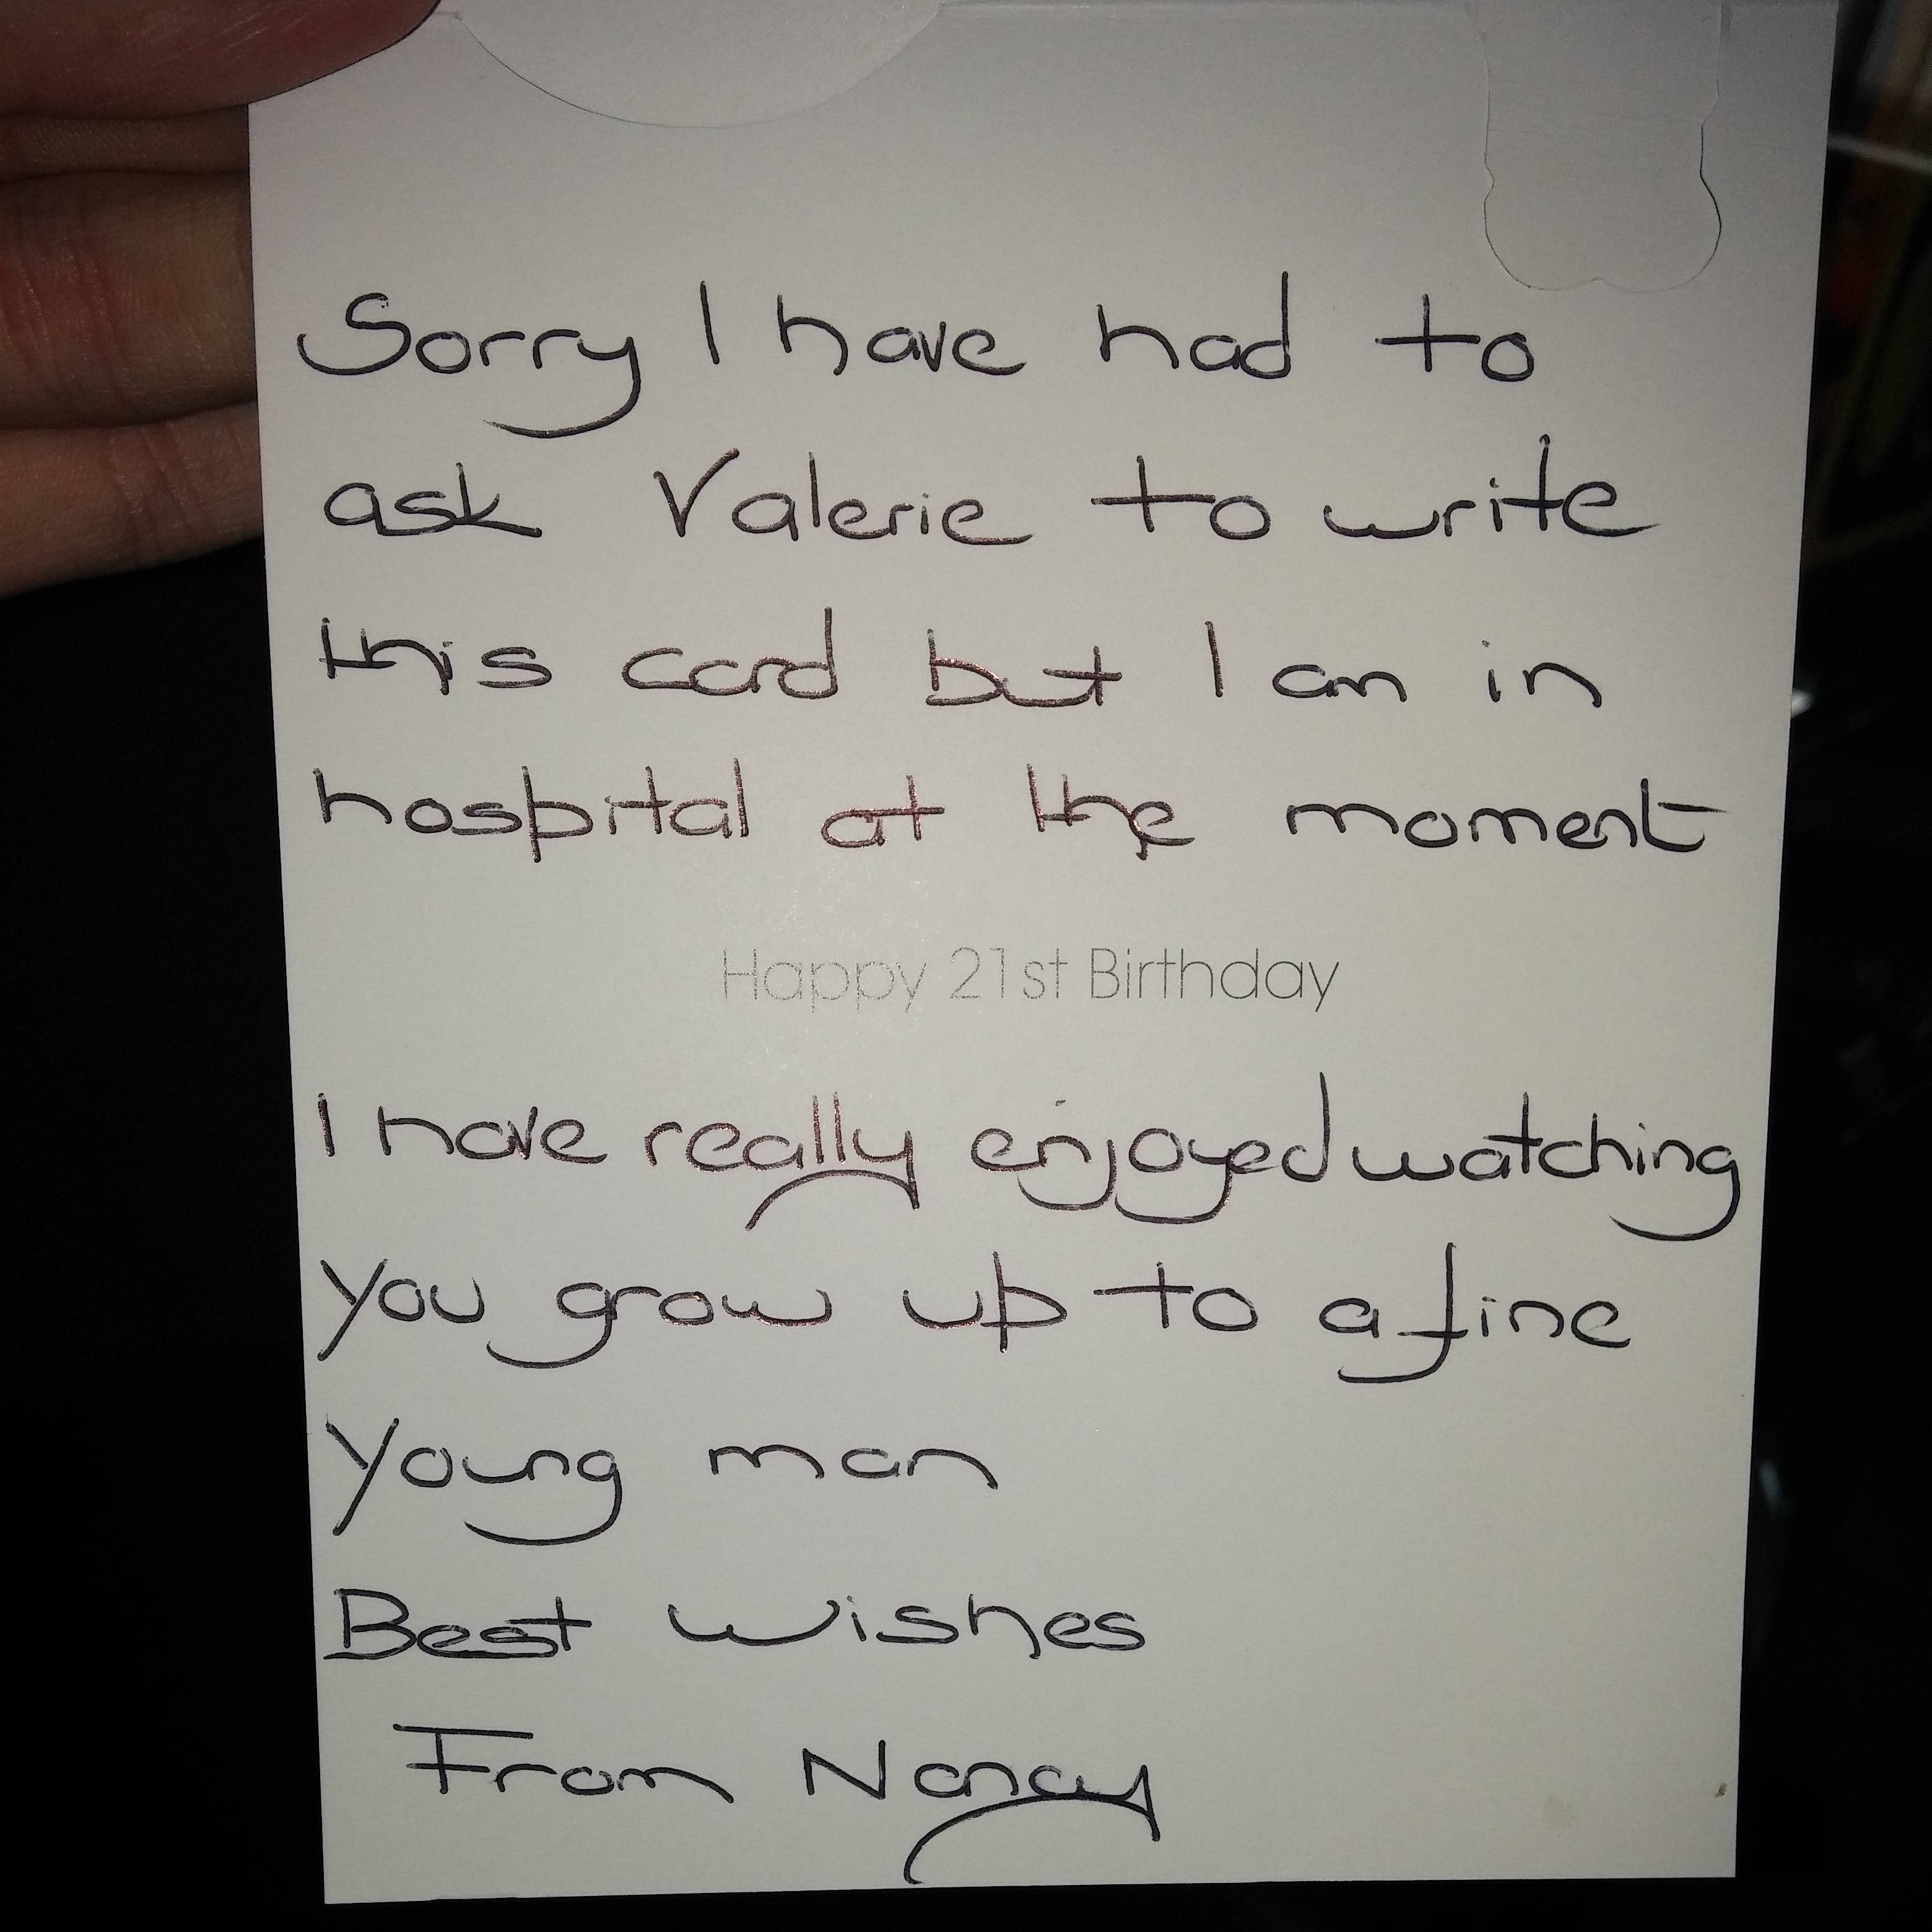 Sorry I have had to
ask Valerie to write
this card but I am in
hospital at the moment
Happy 21st Birthday
I have really enjoyed watching
you grow up to a fine
young man
Best Wishes
From Nancy